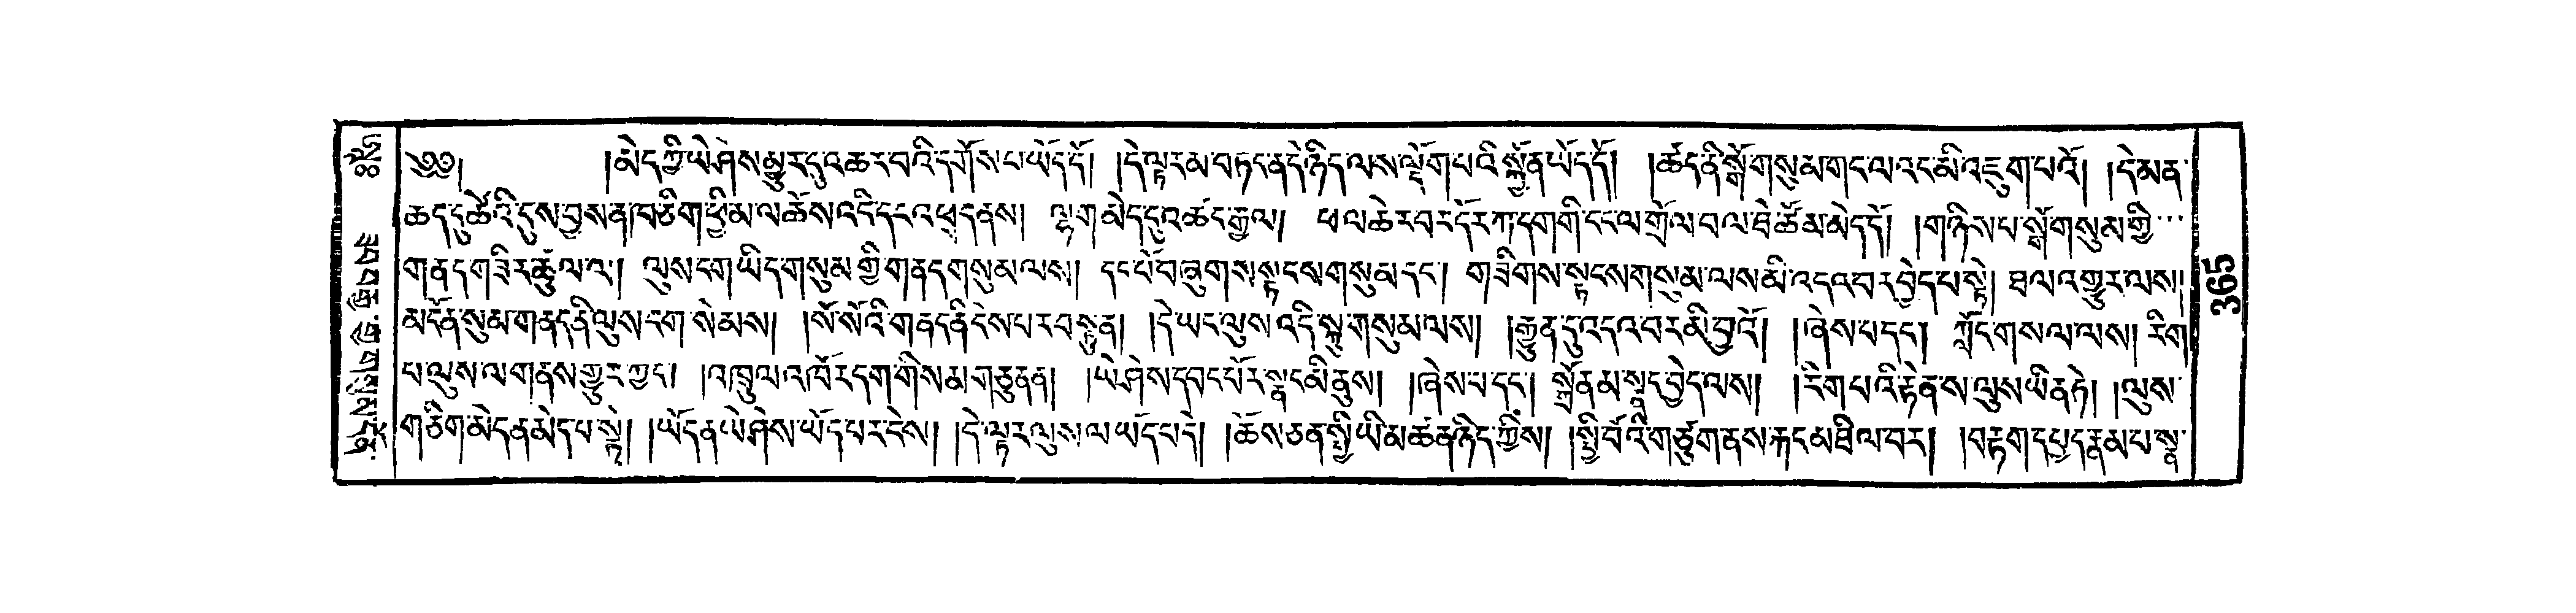 ༄༅། །མེད་ཀྱི་ཡེ་ཤེས་མྱུར་དུ་འཆར་བའི་དགོས་པ་ཡོད་དོ། །དེ་ལྟར་མ་བཏང་ན་དེ་ཉིད་ལས་ལྡོག་པའི་སྐྱོན་ཡོད་དོ། །ཚད་ནི་སྒོ་གསུམ་གང་ལ་འང་མི་འཇུག་པའོ། །དེ་མན་
ཆད་དུ་ཚེའི་དུས་བྱས་ན།བཅིག་ཕྱི་མ་ལ་ཆོས་འདི་དང་འཕྲད་ནས། ལྷག་མེད་དུ་འཚང་རྒྱ་ལ། ཕལ་ཆེར་བར་དོར་ཀ་དག་གི་དང་ལ་གྲོལ་བ་ལ་ཐེ་ཚོམ་མེད་དོ། །གཉིས་པ་སྒོ་གསུམ་གྱི་...
གནད་གཟིར་ཚུལ་ལ། ལུས་ངག་ཡིད་གསུམ་གྱི་གནད་གསུམ་ལས། དང་པོ་བཞུགས་སྟངས་གསུམ་དང་། གཟིགས་སྟངས་གསུམ་ལས་མི་འདའ་བར་བྱེད་པ་སྟེ། ཐལ་འགྱུར་ལས།
མངོན་སུམ་གནད་ནི་ལུས་ངག་སེམས། །སོ་སོའི་གནད་ནི་ངེས་པར་བསྟུན། །དེ་ཡང་ལུས་འདི་སྐུ་གསུམ་ལས། །རྒྱུན་དུ་འདའ་བར་མི་བྱའོ། །ཞེས་པ་དང་། ཀློང་གསལ་ལས། རིག
པ་ལུས་ལ་གནས་གྱུར་ཀྱང་། །འཁྲུལ་འཁོར་དག་གིས་མ་གཅུན་ན། །ཡེ་ཤེས་དབང་པོར་སྣང་མི་ནུས། །ཞེས་པ་དང་། སྒྲོན་མ་སྣང་བྱེད་ལས། །རིག་པའི་རྟེན་ས་ལུས་ཡིན་ཏེ། །ལུས་
གཅིག་མེད་ན་མེད་པ་སྟེ། །ཡོད་ན་ཡེ་ཤེས་ཡོད་པར་ངེས། །དེ་ལྟར་ལུས་ལ་ཡོད་པ་དེ། །ཆོས་ཅན་སྤྱི་ཡི་མཚན་ཉིད་ཀྱིས། །སྤྱི་བོའི་གཙུག་ནས་རྐང་མཐིལ་བར། །བརྟག་དཔྱད་རྣམ་པ་སྣ་